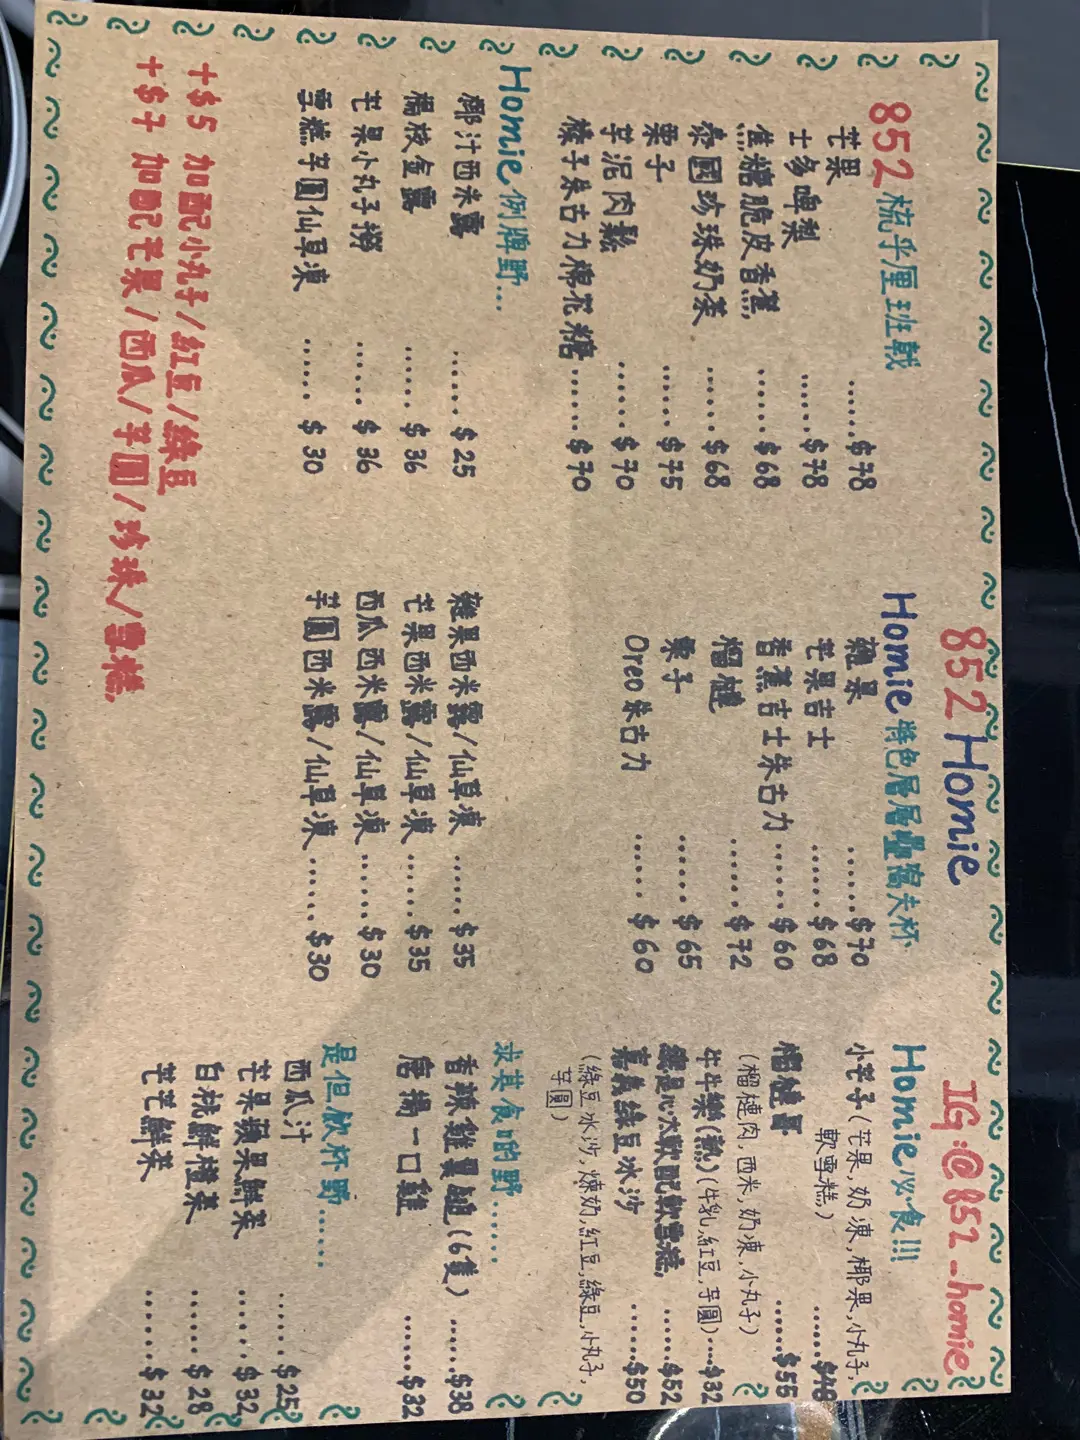 852 Homie
IG:@852_homie
852 梳乎厘班戟
芒果 ......$78
士多啤梨 ......$78
焦糖脆皮香蕉 ......$68
泰國珍珠奶茶 ......$68
栗子 ......$75
芋泥肉鬆 ......$70
榛子朱古力棉花糖 ......$70
Homie 特色層層疊窩夫杯
雜果 ......$70
芒果吉士 ......$68
香蕉吉士朱古力 ......$60
榴槤 ......$72
栗子 ......$65
Oreo 朱古力 ......$60
Homie 必食!!!
小芒子(芒果,奶凍,椰果,小丸子,
軟雪糕) ......$48
榴槤冧 ......$55
(榴槤肉,西米,奶凍,小丸子)
牛牛樂(熱)(牛乳,紅豆,芋圓)....$32
總是心太軟配軟雪糕 ......$52
嘉義綠豆冰沙 ......$50
(綠豆冰沙,煉奶,紅豆,綠豆,小丸子,
芋圓)
Homie 例牌野...
椰汁西米露 ......$25
楊枝金露 ......$36
芒果小丸子撈 ......$36
雪糕芋圓仙草凍 ......$30
雜果西米露/仙草凍 ......$35
芒果西米露/仙草凍 ......$35
西瓜西米露/仙草凍 ......$30
芋圓西米露/仙草凍 ......$30
求其食啲野......
香辣雞翼趜(6隻) ......$38
唐揚一口雞 ......$32
是但飲杯野......
西瓜汁 ......$25
芒果蘋果鮮茶 ......$32
白桃鮮橙茶 ......$28
芒芒鮮茶 ......$32
+$5 加配小丸子/紅豆/綠豆
+$7 加配芒果/西瓜/芋圓/珍珠/雪糕